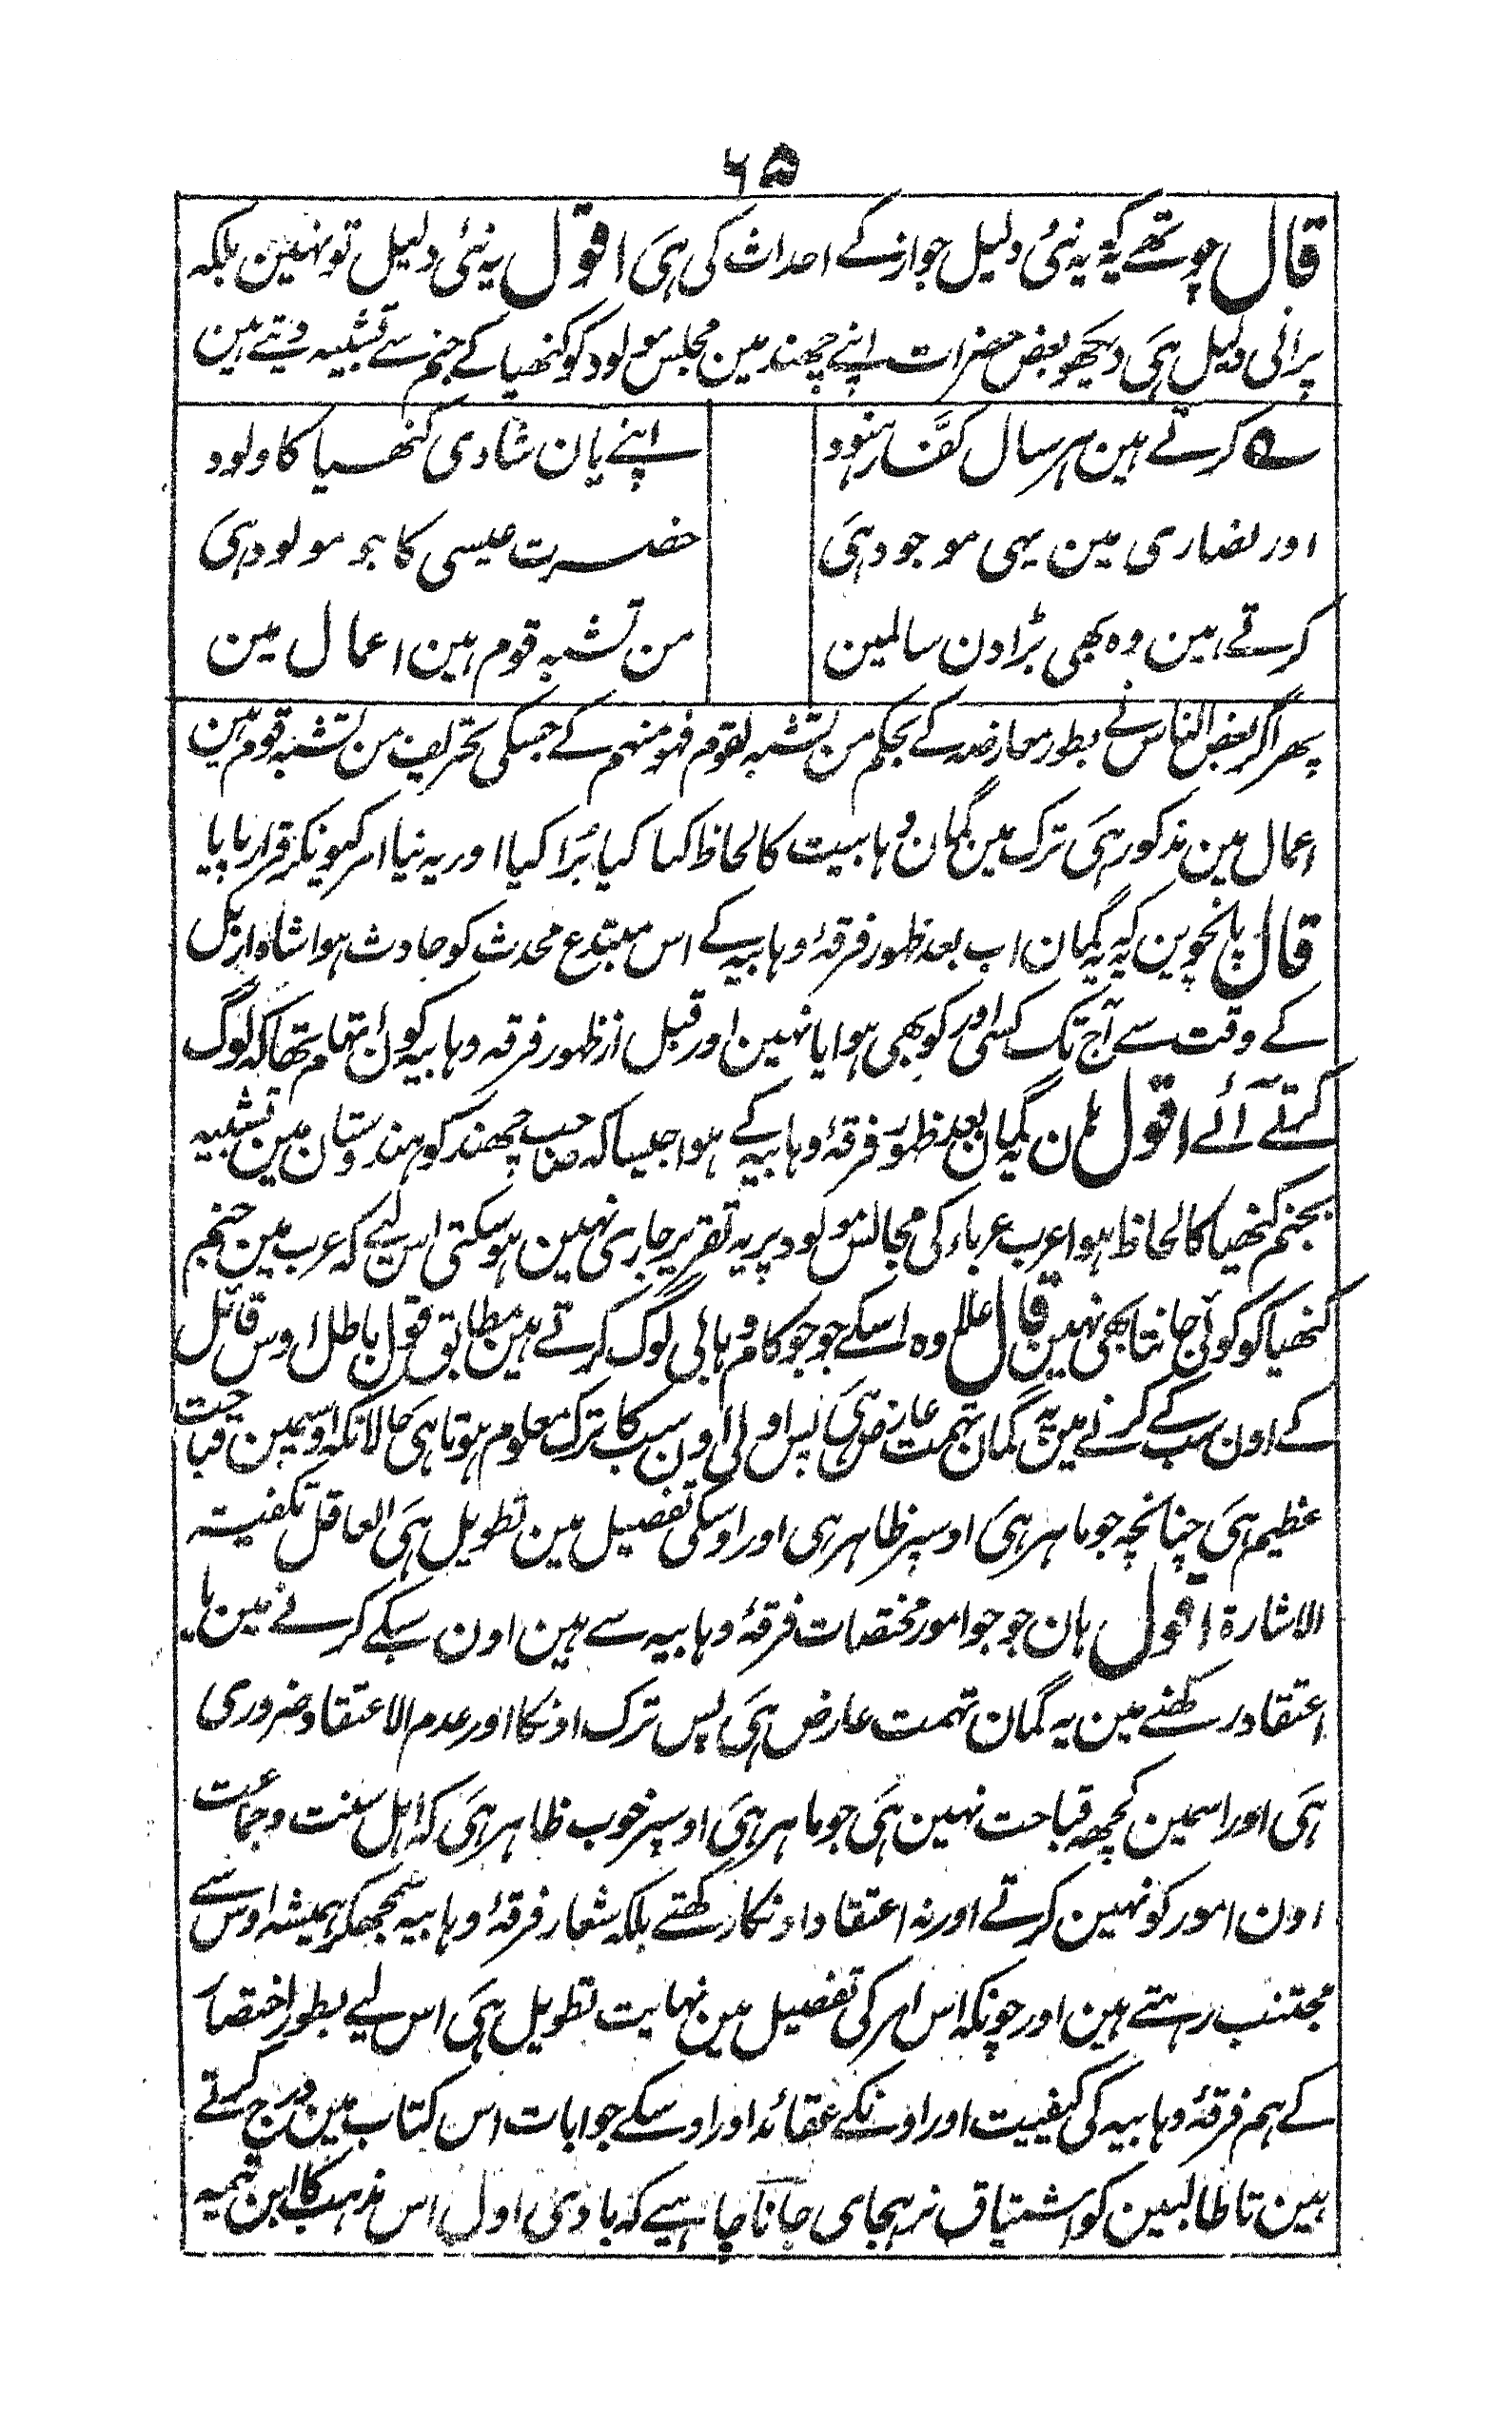 ٦٥
قال چوتھے یہ کہ یہ نئی دلیل جواز کے احداث کی ہی اقول یہ نئی دلیل تو نہین بلکہ
پرانی دلیل ہی دیکھو بعض حضرات اپنے چھند مین مجلس مولود کو کنھیا کے جنم سے تشبیہ دیتے ہین
ے کرتے ہین ہر سال کفّار ہنود
اپنے یان شادی کنھیا کا ولود
اور نضاری مین یہی موجود ہی
حضرت عیسی کا جو مولود ہی
کرتے ہین وہ بھی بڑا دن سالمین
من تشبہ قوم ہین اعمال مین
پھر اگر بعض الناس نے بطور معارضہ کے بحکم من تشبہ لقوم فھو منہم کے جسکی تحریف من تشبہ قوم ہین
اعمال مین مذکور ہی ترک مین گمان وہابیت کا لحاظ کیا کیا بُرا کیا اور یہ نیا امر کیونکر قرار پایا
قال پانچوین یہ کہ یہ گمان اب بعد ظہور فرقۂ وہابیہ کے اس مبتدع محدث کو حادث ہوا شاہ اربل
کے وقت سے آج تک کسی اور کو بھی ہوا یا نہین اور قبل از ظہور فرقہ وہابیہ کون اتہام تھا کہ لوگ
کرتے آئے اقول ہان یہ گمان بعد ظہور فرقۂ وہابیہ کے ہوا جیسا کہ صاحب چھند کو ہندوستان مین تشبیہ
بجنم کنھیا کا لحاظ ہوا عرب عرباء کی مجالس مولود پر یہ تقریر جاری نہین ہو سکتی اس لیے کہ عرب مین جنم
کنھیا کو کوئی جانتا بھی نہین قال علاوہ اسکے جو جو کام وہابی لوگ کرتے ہین مطابق قول باطل اوس قائل
کے اون سب کے کرنے مین یہ گمان تہمت عارض ہی پس اولی اون سب کا ترک معلوم ہوتا ہی حالانکہ اوسمین قباحت
عظیم ہی چنانچہ جو ماہر ہی اوسپر ظاہر ہی اور اوسکی تفصیل مین تطویل ہی العاقل تکفیتہ
الاشارۃ اقول ہان جو جو امور مختصات فرقۂ وہابیہ سے ہین اون سبکے کرنے مین یا
اعتقاد رکھنے مین یہ گمان تہمت عارض ہی پس ترک اونکا اور عدم الاعتقاد ضروری
ہی اور اسمین کچھ قباحت نہین ہی جو ماہر ہی اوسپر خوب ظاہر ہی کہ اہل سنت وجماعت
اون امور کو نہین کرتے اور نہ اعتقاد اونکا رکھتے بلکہ شعار فرقۂ وہابیہ سمجھکر ہمیشہ اوس سے
مجتنب رہتے ہین اور چونکہ اس امر کی تفصیل مین نہایت تطویل ہی اس لیے بطور اختصار
کے ہم فرقۂ وہابیہ کی کیفیت اور اونکے عقائد اور اوسکے جوابات اس کتاب مین درج کرتے
ہین تا طالبین کو اشتیاق نرہجای جاننا چاہیے کہ بادی اول اس مذہب کا ابن تیمیہ